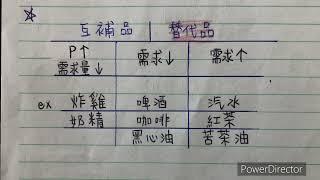 互補品 替代品
P↑
需求量↓ 需求↓ 需求↑
ex 炸雞 啤酒 汽水
奶精 咖啡 紅茶
黑心油 苦茶油
PowerDirector